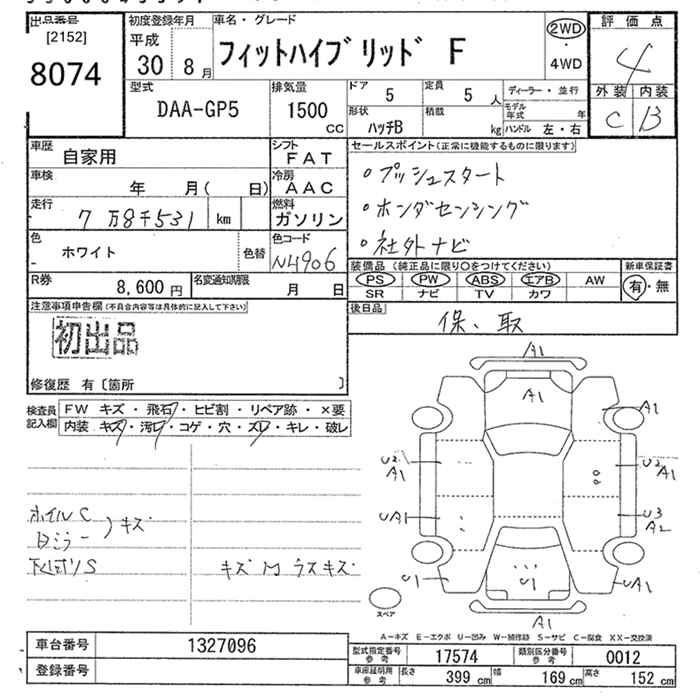 出品番号
[2152]
8074
初度登録年月
平成
30 8月
車名・グレード
フィットハイブリッド F
2WD
・
4WD
評価点
4
外装 内装
C B
型式
DAA-GP5
排気量
1500
CC
ドア
5
定員
5 人
形状
ハッチB
積載
kg
ディーラー・並行
モデル年式 年
ハンドル 左・右
車歴
自家用
シフト
FAT
車検
年 月( 日)
冷房
AAC
走行
7万8千531 km
燃料
ガソリン
色
ホワイト
色替
色コード
R券
8,600円
名変通知期限
月 日
セールスポイント(正常に機能するものに限ります)
・プッシュスタート
・ホンダセンシング
・社外ナビ
装備品(純正品に限り○をつけてください)
PS PW ABS エアB AW
SR ナビ TV カワ
新車保証書
有・無
後日品
保、取
注意事項申告欄(不具合内容等は具体的に記入して下さい)
初出品
修復歴 有〔箇所 〕
検査員記入欄
FW キズ・飛石・ヒビ割・リペア跡・×要
内装 キズ・汚レ・コゲ・穴・スレ・キレ・破レ
ホイルC
日ミラー
キズ
下回りS
キズ M ラスキズ
A1
A1
A1
U2
A1
U2
A1
UA1
U3
A2
U1
U1
UA1
スペア
A1
A-キズ E-エクボ U-凹み W-補修跡 S-サビ C-腐食 XX-交換済
車台番号
1327096
登録番号
型式指定番号
参考
17574
類別区分番号
参考
0012
車庫証明用
参考
長さ 399 cm 幅 169 cm 高さ 152 cm